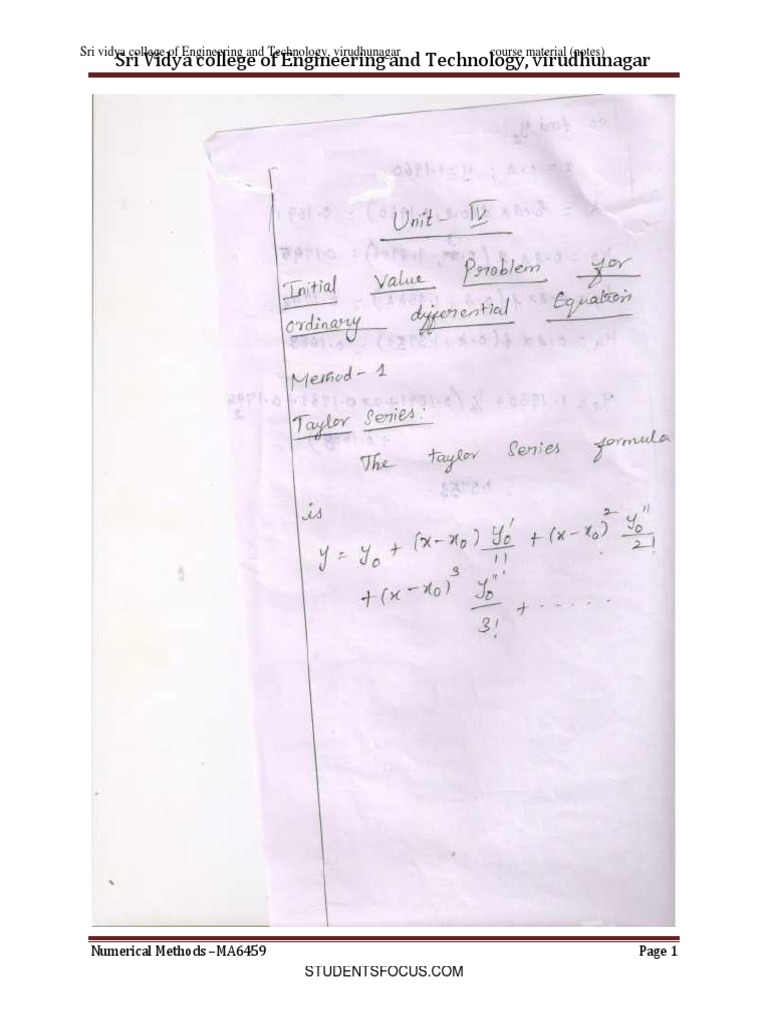 Sri vidya college of Engineering and Technology, virudhunagar course material (notes)
Sri Vidya college of Engineering and Technology, virudhunagar
Unit - IV
Initial Value Problem for
ordinary differential Equation
Method - 1
Taylor Series:
The taylor Series formula
is
y = y₀ + (x-x₀) y₀'/1! + (x-x₀)² y₀''/2!
+ (x-x₀)³ y₀'''/3! + ......
Numerical Methods –MA6459 Page 1
STUDENTSFOCUS.COM